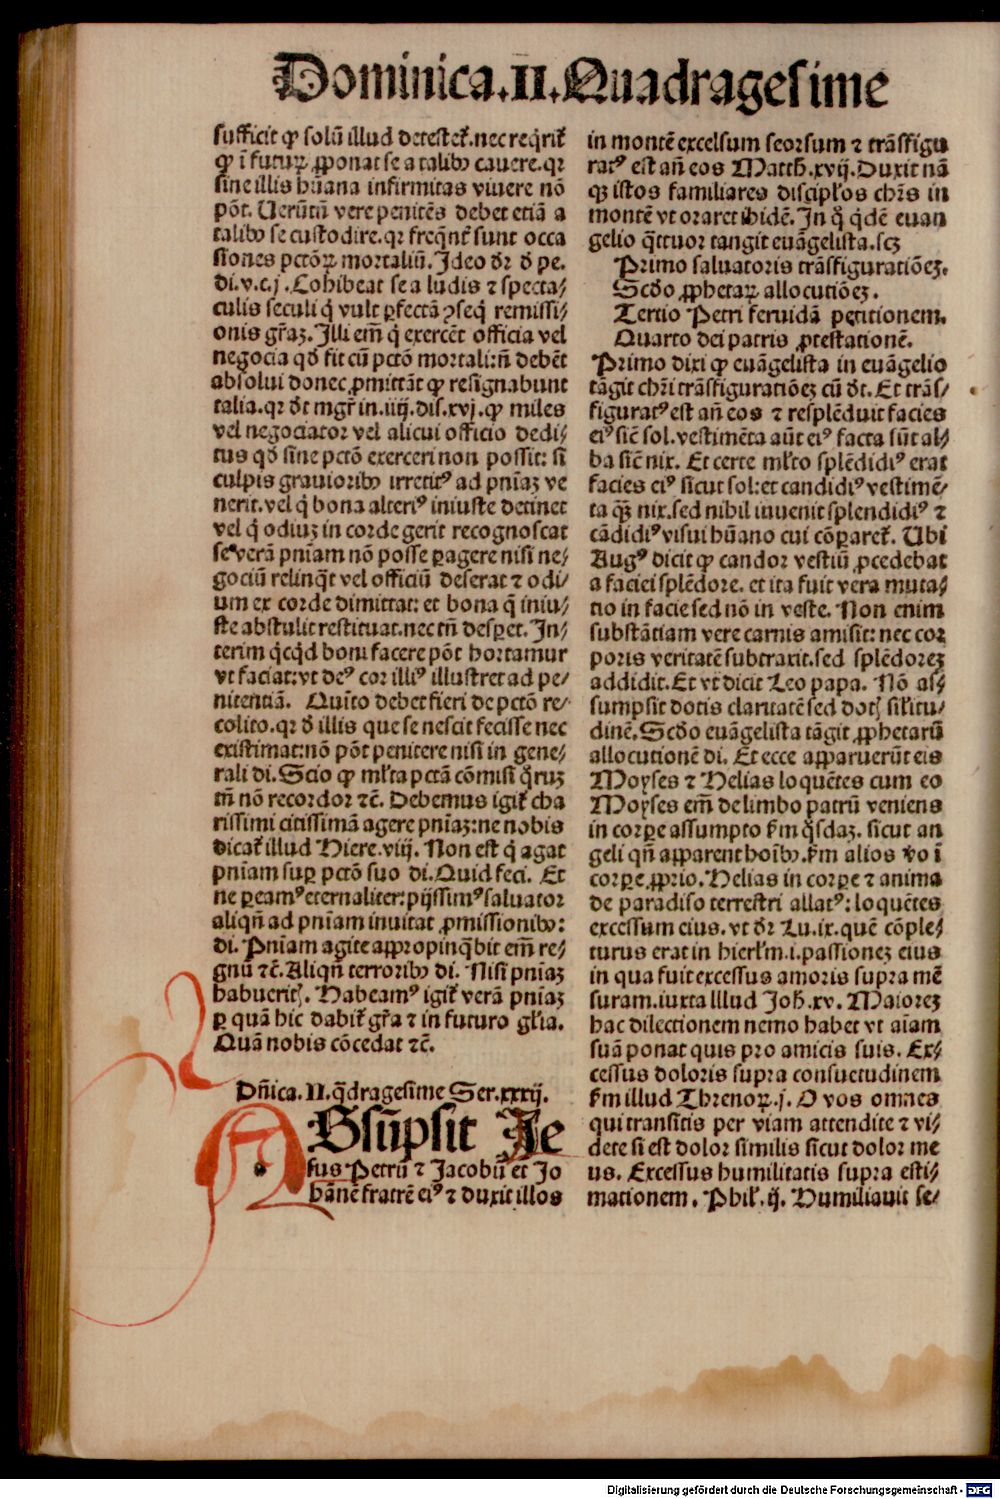 Dominica.II.Quadragesime
sufficit ꝙ solū illud detestet᷑.nec req̇rit᷑
ꝙ ī futuꝝ ꝓponat se a talibꝰ cauere.qꝛ
sine illis hūana infirmitas viuere nō
pōt. Uerūtn̄ vere penitēs debet etiā a
talibꝰ se custodire.qꝛ freq̄nt᷑ sunt occa
siones pctōꝝ mortaliū. Ideo dr̄ đ pe.
di.v.c.j. Cohibeat se a ludis ⁊ specta⸗
culis seculi q̇ vult ꝑfectā ꝯseq̇ remissi⸗
onis gr̄aꝫ. Illi em̄ q̇ exercēt officia vel
negocia qđ fit cū pctō mortali:n̄ debēt
absolui donec ꝓmittāt ꝙ resignabunt
talia.qꝛ đt mgr̄ in.iiij.dis.xvj.ꝙ miles
vel negociator vel alicui officio dedi⸗
tus qđ sine pctō exerceri non possit: si
culpis grauioribꝰ irretitꝰ ad pn̄iaꝫ ve
nerit.vel q̇ bona alteriꝰ iniuste detinet
vel q̇ odiuꝫ in corde gerit recognoscat
se verā pn̄iam nō posse ꝑagere nisi ne⸗
gociū relinq̄t vel officiū deserat ⁊ odi⸗
um ex corde dimittat: et bona q̄ iniu⸗
ste abstulit restituat.nec tn̄ desꝑet. In⸗
terim q̇cq̇d boni facere pōt hortamur
vt faciat:vt deꝰ cor illiꝰ illustret ad pe⸗
nitentiā. Quīto debet fieri de pctō re⸗
colito.qꝛ đ illis que se nescit fecisse nec
existimat:nō pōt penitere nisi in gene⸗
rali di. Scio ꝙ ml̓ta pctā cōmisi q̊ruꝫ
tn̄ nō recordor ⁊c̄. Debemus igit᷑ cha
rissimi citissimā agere pn̄iaꝫ:ne nobis
dicat᷑ illud Hiere.viij. Non est q̇ agat
pn̄iam suꝑ pctō suo di. Quid feci. Et
ne ꝑeamꝰ eternaliter:pijssimꝰ saluator
aliqn̄ ad pn̄iam inuitat ꝓmissionibꝰ:
di. Pn̄iam agite appropinq̄bit em̄ re⸗
gnū ⁊c̄. Aliqn̄ terroribꝰ di. Nisi pn̄iaꝫ
habueritꝭ. Habeamꝰ igit᷑ verā pn̄iaꝫ
ꝑ quā hic dabit᷑ gr̄a ⁊ in futuro gl̓ia.
Quā nobis cōcedat ⁊c̄.
Dn̄ica.II.q̄dragesime Ser.xxxij.
ASsūpsit Je
sus Petrū ⁊ Jacobū et Jo
hānē fratrē eiꝰ ⁊ duxit illos
in montē excelsum seorsum ⁊ trāsfigu
ratꝰ est an̄ eos Matth.xvij. Duxit nā
qꝫ istos familiares discipl̓os chr̄s in
montē vt oraret ibidē. In q̊ q̇dē euan
gelio q̄ttuor tangit euāgelista.scꝫ
Primo saluatoris trāsfiguratiōeꝫ.
Scđo ꝓphetaꝝ allocutiōeꝫ.
Tertio Petri feruidā petitionem.
Quarto dei patris ꝓtestationē.
Primo dixi ꝙ euāgelista in euāgelio
tāgit chr̄i trāsfiguratiōeꝫ cū đt. Et trās⸗
figuratꝰ est an̄ eos ⁊ resplēduit facies
eiꝰ sic̄ sol.vestimēta aūt eiꝰ facta sūt al⸗
ba sic̄ nix. Et certe ml̓to splēdidiꝰ erat
facies eiꝰ sicut sol:et candidiꝰ vestimē⸗
ta qꝫ nix.sed nihil inuenit splendidiꝰ ⁊
cādidiꝰ visui hūano cui cōparet᷑. Ubi
Augꝰ dicit ꝙ candor vestiū ꝓcedebat
a faciei splēdore. et ita fuit vera muta⸗
tio in facie sed nō in veste. Non enim
substātiam vere carnis amisit: nec cor
poris veritatē subtraxit.sed splēdoreꝫ
addidit. Et vt dicit Leo papa. Nō as⸗
sumpsit dotis claritatē sed dotꝭ sil̓itu⸗
dinē. Scđo euāgelista tāgit ꝓphetarū
allocutionē di. Et ecce apparuerūt eis
Moyses ⁊ Helias loquētes cum eo
Moyses em̄ de limbo patrū veniens
in corꝑe assumpto ẜm q̊sdaꝫ. sicut an
geli qn̄ apparent hoībꝰ.ẜm alios ṽo ī
corꝑe ꝓprio. Helias in corꝑe ⁊ anima
de paradiso terrestri allatꝰ: loquētes
excessum eius. vt dr̄ Lu.ix.quē cōple⸗
turus erat in hierl̓m.i.passioneꝫ eius
in qua fuit excessus amoris supra mē
suram.iuxta illud Joh̄.xv. Maioreꝫ
hac dilectionem nemo habet vt aīam
suā ponat quis pro amicis suis. Ex⸗
cessus doloris supra consuetudinem
ẜm illud Threnoꝝ.j. O vos omnes
qui transitis per viam attendite ⁊ vi⸗
dete si est dolor similis sicut dolor me
us. Excessus humilitatis supra esti⸗
mationem. Phil̓.ij. Humiliauit se⸗
Digitalisierung gefördert durch die Deutsche Forschungsgemeinschaft - DFG